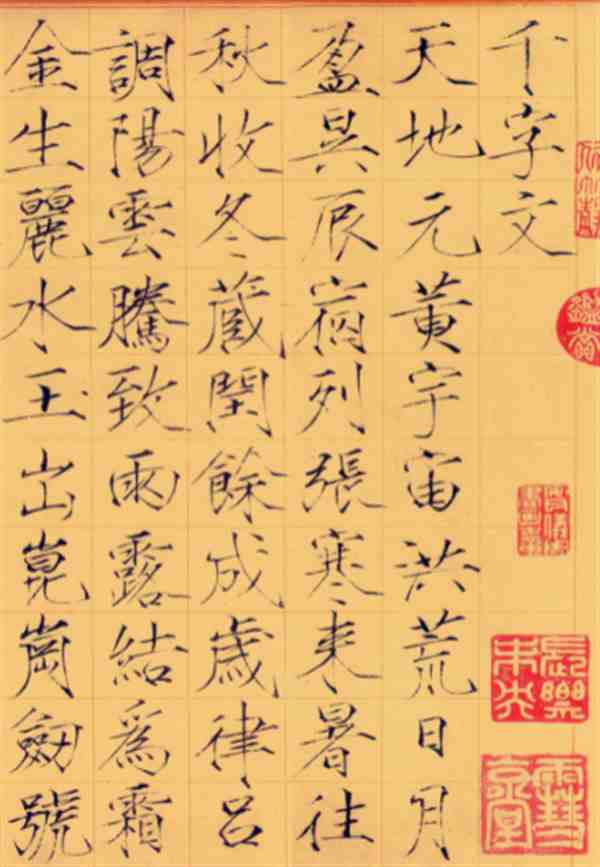 千字文
天地元黄宇宙洪荒日月
盈昃辰宿列張寒来暑往
秋收冬蔵閏餘成歲律呂
調陽雲騰致雨露結爲霜
金生麗水玉出崑崗劒號